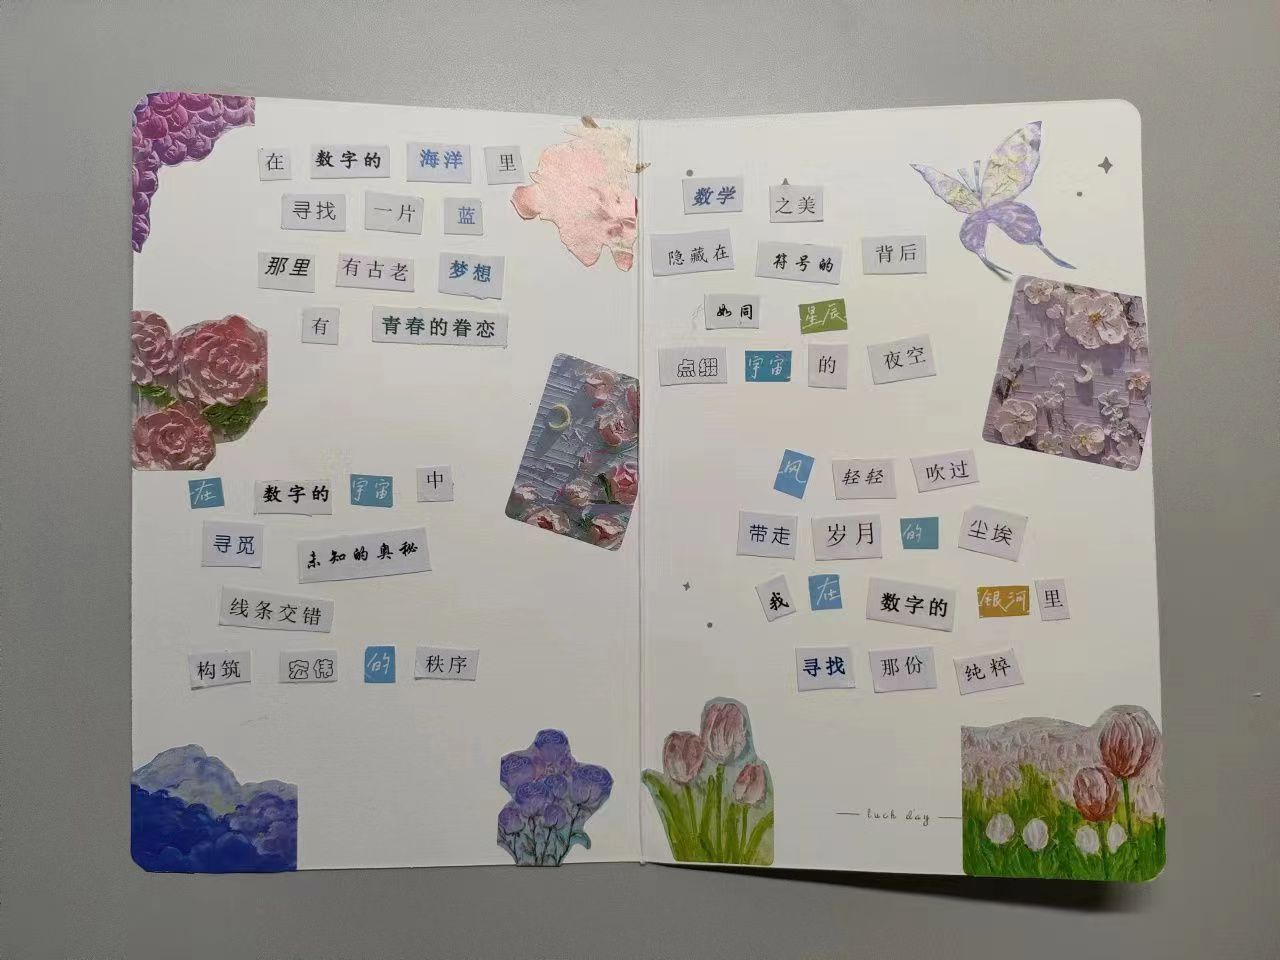 在 数字的 海洋 里
寻找 一片 蓝
那里 有古老 梦想
有 青春的眷恋
在 数字的 宇宙 中
寻觅 未知的奥秘
线条交错
构筑 宏伟 的 秩序
数学 之美
隐藏在 符号的 背后
如同 星辰
点缀 宇宙 的 夜空
风 轻轻 吹过
带走 岁月 的 尘埃
我 在 数字的 银河 里
寻找 那份 纯粹
luck day